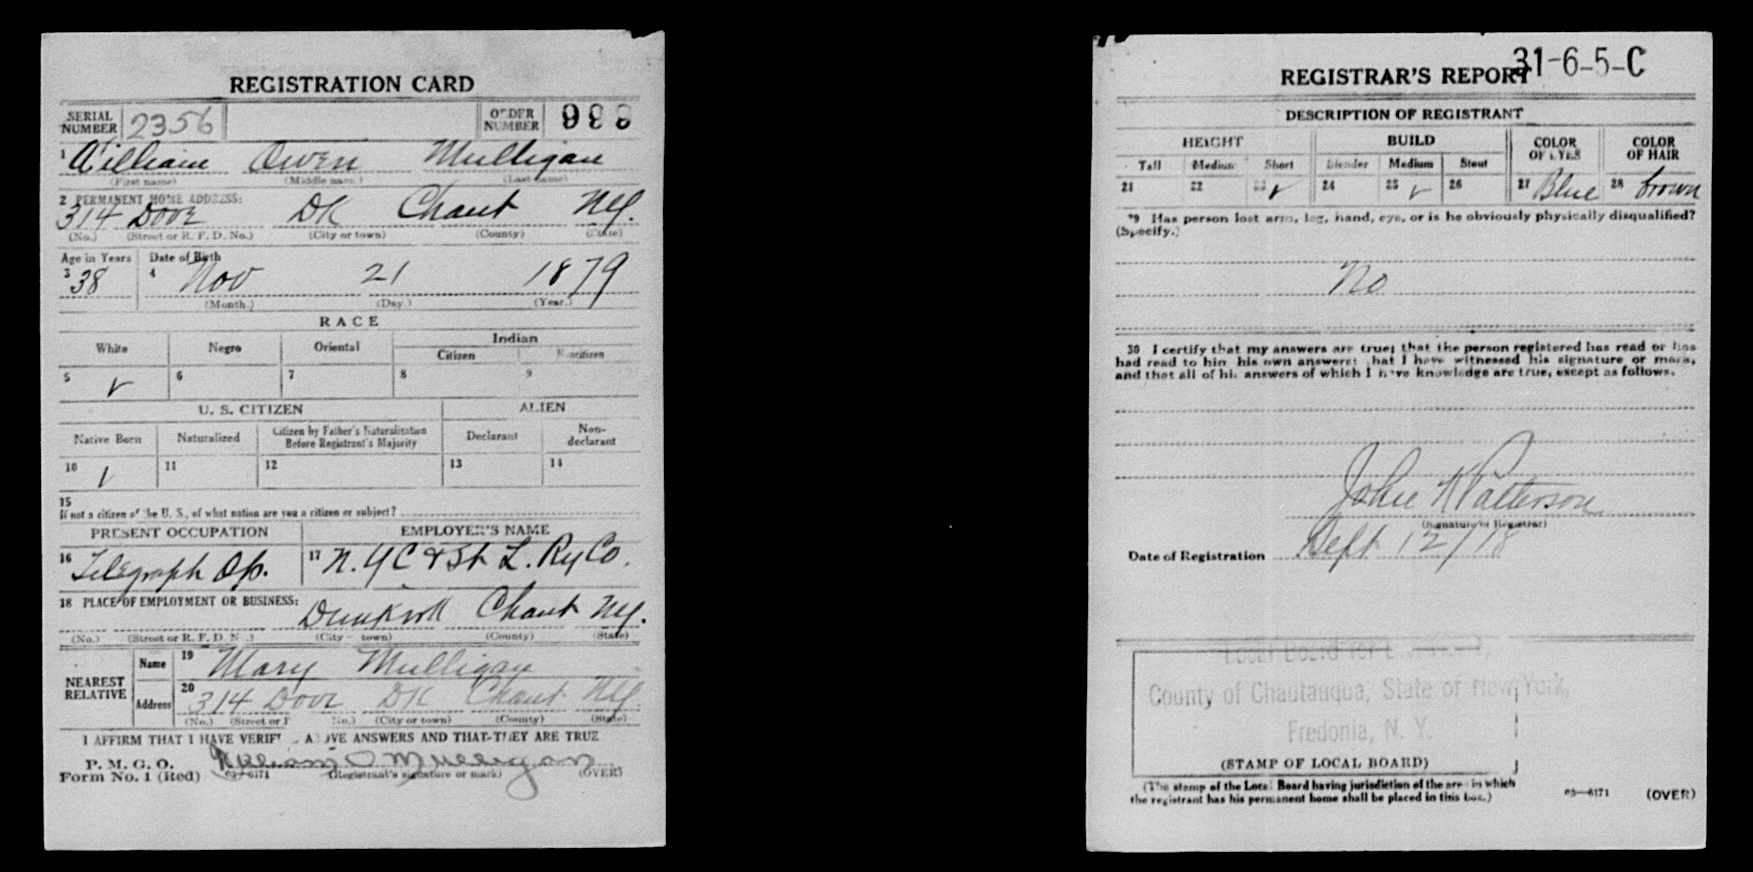 REGISTRATION CARD
SERIAL NUMBER 2356 ORDER NUMBER 998
1 William Owen Mulligan
(First name) (Middle name) (Last name)
2 PERMANENT HOME ADDRESS:
314 Dove DK Chaut NY.
(No.) (Street or R. F. D. No.) (City or town) (County) (State)
Age in Years Date of Birth
3 38 4 Nov 21 1879
(Month.) (Day.) (Year.)
RACE
White Negro Oriental Indian
Citizen Noncitizen
5 ✓ 6 7 8 9
U. S. CITIZEN ALIEN
Native Born Naturalized Citizen by Father's Naturalization Before Registrant's Majority Declarant Non-declarant
10 ✓ 11 12 13 14
15
If not a citizen of the U. S., of what nation are you a citizen or subject?
PRESENT OCCUPATION EMPLOYER'S NAME
16 Telegraph Op. 17 N. Y C & St L. Ry Co.
18 PLACE OF EMPLOYMENT OR BUSINESS:
Dunkirk Chaut NY.
(No.) (Street or R. F. D. No.) (City or town) (County) (State)
NEAREST RELATIVE Name 19 Mary Mulligan
Address 20 314 Dove DK Chaut NY.
(No.) (Street or R. F. D. No.) (City or town) (County) (State)
I AFFIRM THAT I HAVE VERIFIED ABOVE ANSWERS AND THAT THEY ARE TRUE
P. M. G. O.
Form No. 1 (Red) 03—6171 William O Mulligan
(Registrant's signature or mark) (OVER)
31-6-5-C
REGISTRAR'S REPORT
DESCRIPTION OF REGISTRANT
HEIGHT BUILD COLOR OF EYES COLOR OF HAIR
Tall Medium Short Slender Medium Stout
21 22 23 ✓ 24 25 ✓ 26 27 Blue 28 brown
29 Has person lost arm, leg, hand, eye, or is he obviously physically disqualified?
(Specify.)
No
30 I certify that my answers are true; that the person registered has read or has
had read to him his own answers; that I have witnessed his signature or mark,
and that all of his answers of which I have knowledge are true, except as follows.
John K Patterson
(Signature of Registrar)
Date of Registration Sept 12/18
County of Chautauqua, State of New York,
Fredonia, N. Y.
(STAMP OF LOCAL BOARD)
(The stamp of the Local Board having jurisdiction of the area in which
the registrant has his permanent home shall be placed in this box.)
03—6171 (OVER)